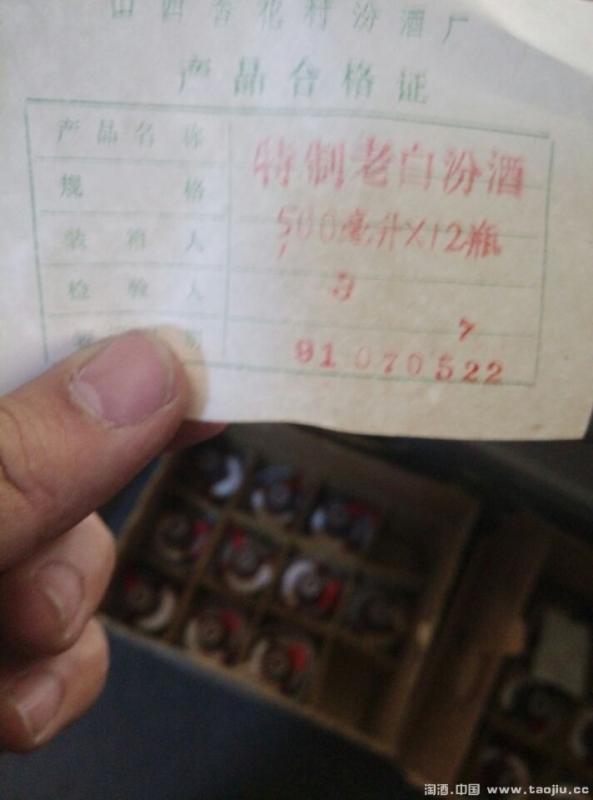 山西杏花村汾酒厂
产品合格证
产品名称 特制老白汾酒
规格 500毫升×12瓶
装箱人 3
检验人 7
期 91070522
淘酒.中国 www.taojiu.cc